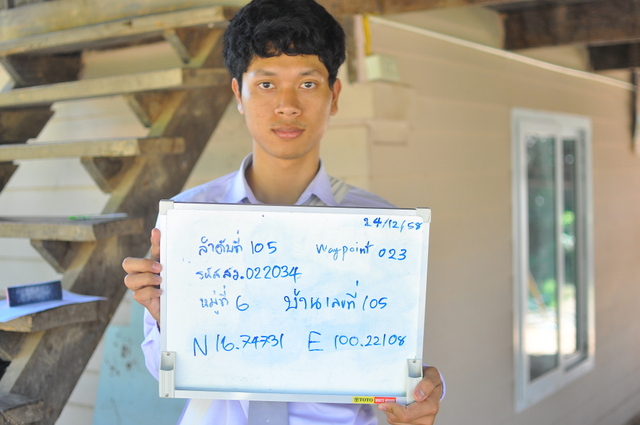 24/12/58
ลำดับที่ 105 waypoint 023
รหัสสว.022034
หมู่ที่ 6 บ้านเลขที่ 105
N 16.74731 E 100.22108